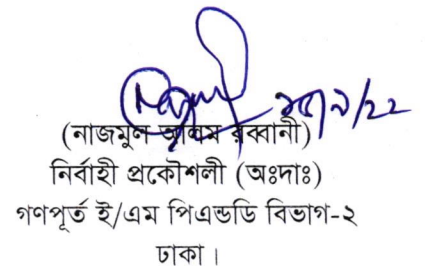 (নাজমুল আলম রব্বানী)
নির্বাহী প্রকৌশলী (অঃদাঃ)
গণপূর্ত ই/এম পিএন্ডডি বিভাগ-২
ঢাকা।